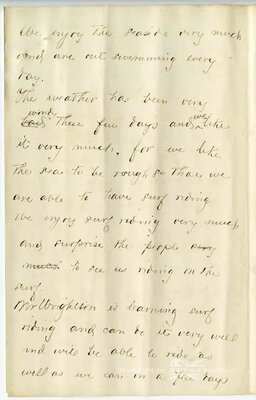 We enjoy the seaside very much
and are out swimming every
day.
The weather has been very
windy
bad these few days and we like
it very much, for we like
the sea to be rough so that we
are able to have surf riding
We enjoy surf riding very much
and surprise the people very
much to see us riding on the
surf.
Mr Wrightson is learning surf
riding and can do it very well
and will be able to ride as
well as we can in a few days